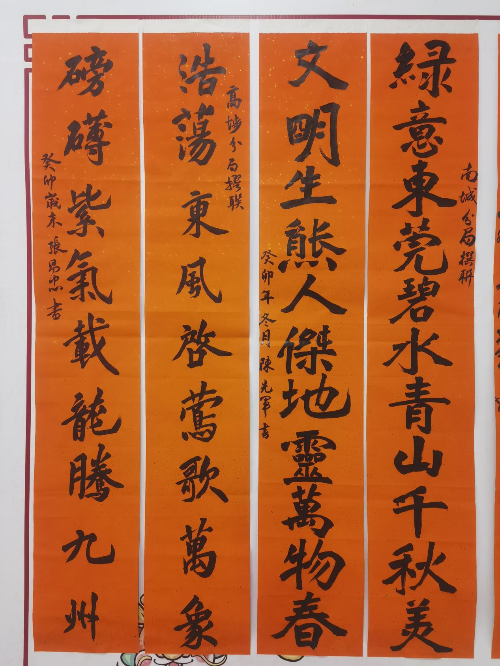 綠意東莞碧水青山千秋美
南城分局撰聯
文明生態人傑地靈萬物春
癸卯年冬月陳先軍書
浩蕩東風啓鶯歌萬象
高埗分局撰聯
磅礴紫氣載龍騰九州
癸卯歲末張昂忠書